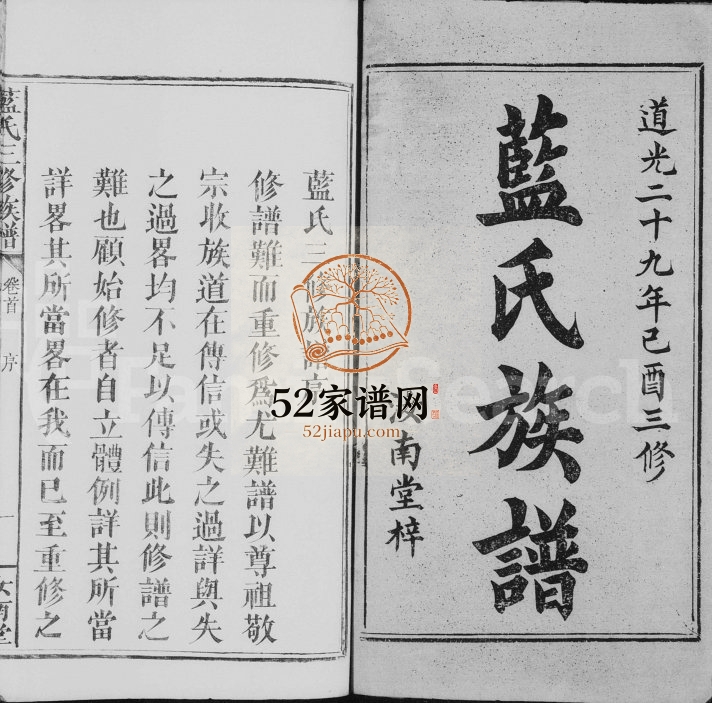 道光二十九年己酉三修
藍氏族譜
汝南堂梓
藍氏三修族譜序
修譜難而重修爲尤難譜以尊祖敬
宗收族道在傳信或失之過詳與失
之過畧均不足以傳信此則修譜之
難也顧始修者自立體例詳其所當
詳畧其所當畧在我而已至重修之
藍氏三修族譜
卷首
序
一
汝南堂
52家谱网
52jiapu.com